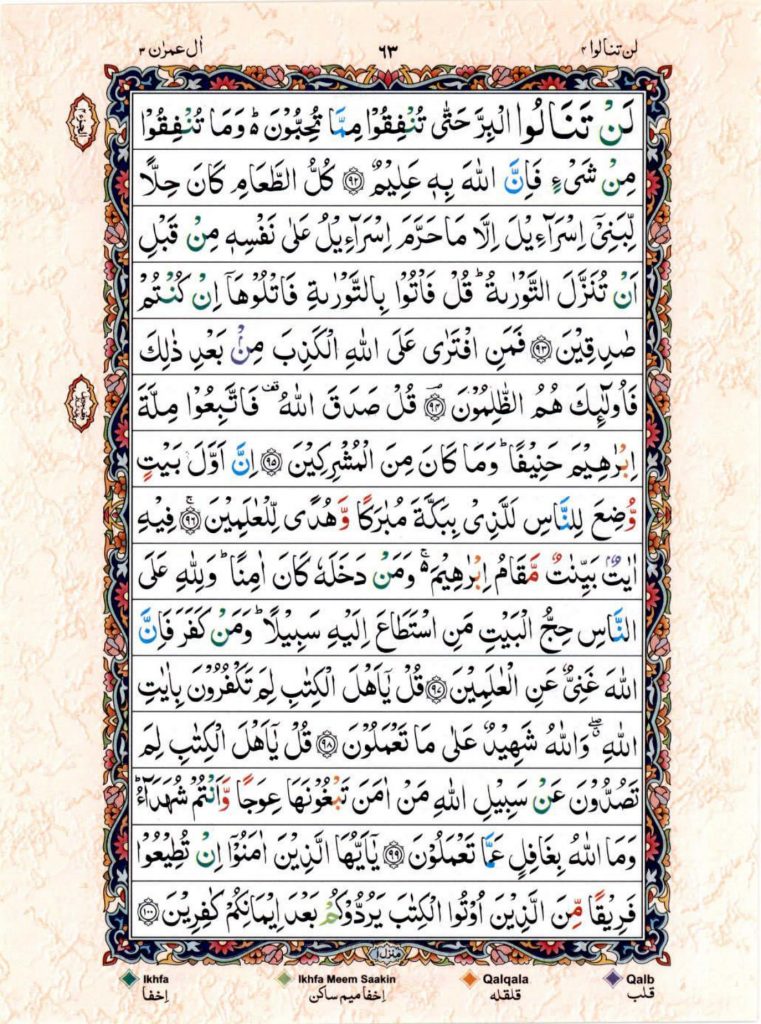 لن تنالوا ۴ ۶۳ اٰل عمرٰن ۳
لَنْ تَنَالُوا الْبِرَّ حَتّٰى تُنْفِقُوْا مِمَّا تُحِبُّوْنَ ۬ؕ وَمَا تُنْفِقُوْا
مِنْ شَىْءٍ فَاِنَّ اللّٰهَ بِهٖ عَلِيْمٌ ﴿۹۲﴾ كُلُّ الطَّعَامِ كَانَ حِلًّا
لِّبَنِىْٓ اِسْرَآءِيْلَ اِلَّا مَا حَرَّمَ اِسْرَآءِيْلُ عَلٰى نَفْسِهٖ مِنْ قَبْلِ
اَنْ تُنَزَّلَ التَّوْرٰىةُ ؕ قُلْ فَاْتُوْا بِالتَّوْرٰىةِ فَاتْلُوْهَاۤ اِنْ كُنْتُمْ
صٰدِقِيْنَ ﴿۹۳﴾ فَمَنِ افْتَرٰى عَلَى اللّٰهِ الْكَذِبَ مِنْۢ بَعْدِ ذٰلِكَ
فَاُولٰٓئِكَ هُمُ الظّٰلِمُوْنَ ﴿۹۴﴾ قُلْ صَدَقَ اللّٰهُ ۟ فَاتَّبِعُوْا مِلَّةَ
اِبْرٰهِيْمَ حَنِيْفًا ؕ وَمَا كَانَ مِنَ الْمُشْرِكِيْنَ ﴿۹۵﴾ اِنَّ اَوَّلَ بَيْتٍ
وُّضِعَ لِلنَّاسِ لَلَّذِىْ بِبَكَّةَ مُبٰرَكًا وَّهُدًى لِّلْعٰلَمِيْنَ ﴿۹۶﴾ۚ فِيْهِ
اٰيٰتٌۢ بَيِّنٰتٌ مَّقَامُ اِبْرٰهِيْمَ ۬ۚ وَمَنْ دَخَلَهٗ كَانَ اٰمِنًا ؕ وَلِلّٰهِ عَلَى
النَّاسِ حِجُّ الْبَيْتِ مَنِ اسْتَطَاعَ اِلَيْهِ سَبِيْلًا ؕ وَمَنْ كَفَرَ فَاِنَّ
اللّٰهَ غَنِىٌّ عَنِ الْعٰلَمِيْنَ ﴿۹۷﴾ قُلْ يٰۤاَهْلَ الْكِتٰبِ لِمَ تَكْفُرُوْنَ بِاٰيٰتِ
اللّٰهِ ۖۗ وَاللّٰهُ شَهِيْدٌ عَلٰى مَا تَعْمَلُوْنَ ﴿۹۸﴾ قُلْ يٰۤاَهْلَ الْكِتٰبِ لِمَ
تَصُدُّوْنَ عَنْ سَبِيْلِ اللّٰهِ مَنْ اٰمَنَ تَبْغُوْنَهَا عِوَجًا وَّاَنْتُمْ شُهَدَآءُ ؕ
وَمَا اللّٰهُ بِغَافِلٍ عَمَّا تَعْمَلُوْنَ ﴿۹۹﴾ يٰۤاَيُّهَا الَّذِيْنَ اٰمَنُوْۤا اِنْ تُطِيْعُوْا
فَرِيْقًا مِّنَ الَّذِيْنَ اُوْتُوا الْكِتٰبَ يَرُدُّوْكُمْ بَعْدَ اِيْمَانِكُمْ كٰفِرِيْنَ ﴿۱۰۰﴾
منزل ۱
Ikhfa Ikhfa Meem Saakin Qalqala Qalb
اِخفا اِخفا میم ساکن قلقله قلب